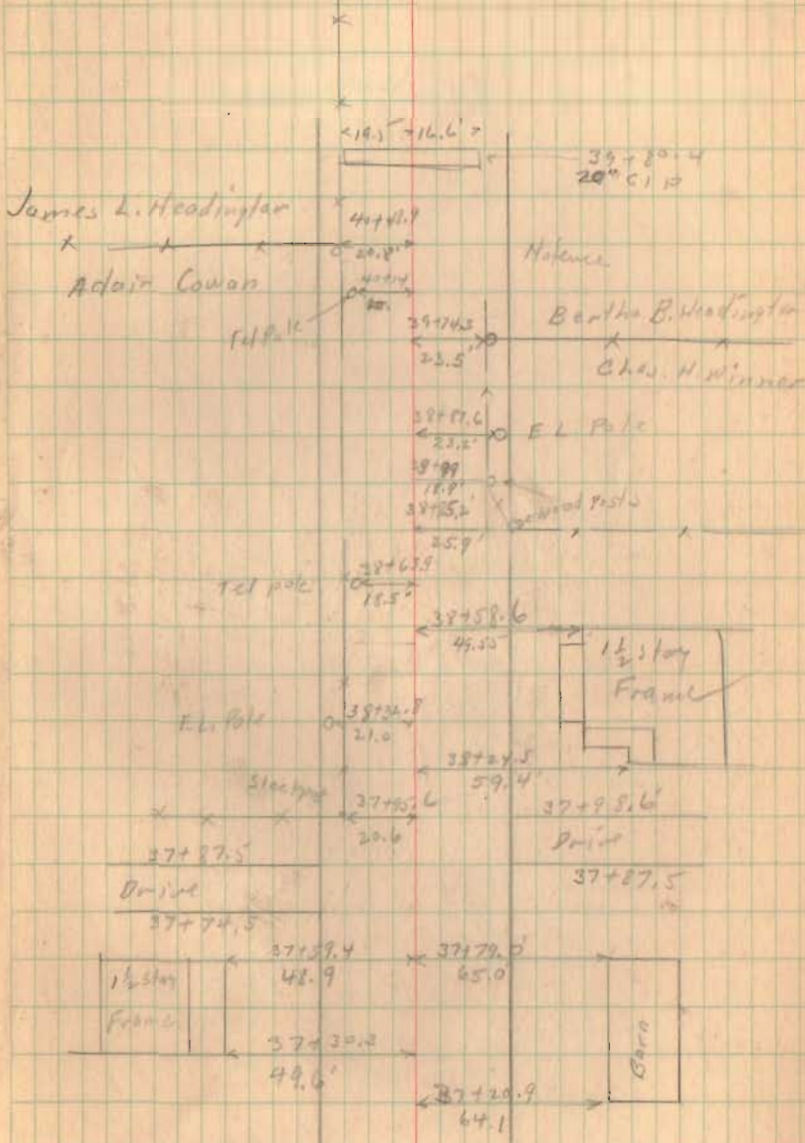 19.5 16.6'
39+80.4
20" C I P
James L. Headington
40+48.9
20.8'
Adair Cowan
40+14
Tel Pole
No fence
39+74.3
23.5'
Bertha B. Headington
Chas. H. Winner
38+87.6
23.2'
E L Pole
18.9'
38+85.2'
25.9'
wood Posts
Tel pole
38+63.9
18.5'
38+58.6
49.55'
1 1/2 Story
Frame
E. L. Pole
21.0
38+24.5
59.4'
20.6
37+98.6'
Drive
37+87.5
37+87.5
Drive
37+74.5
37+59.4
48.9
37+79.0'
65.0
1 1/2 Story
Frame
37+30.3
49.6'
Barn
37+20.9
64.1